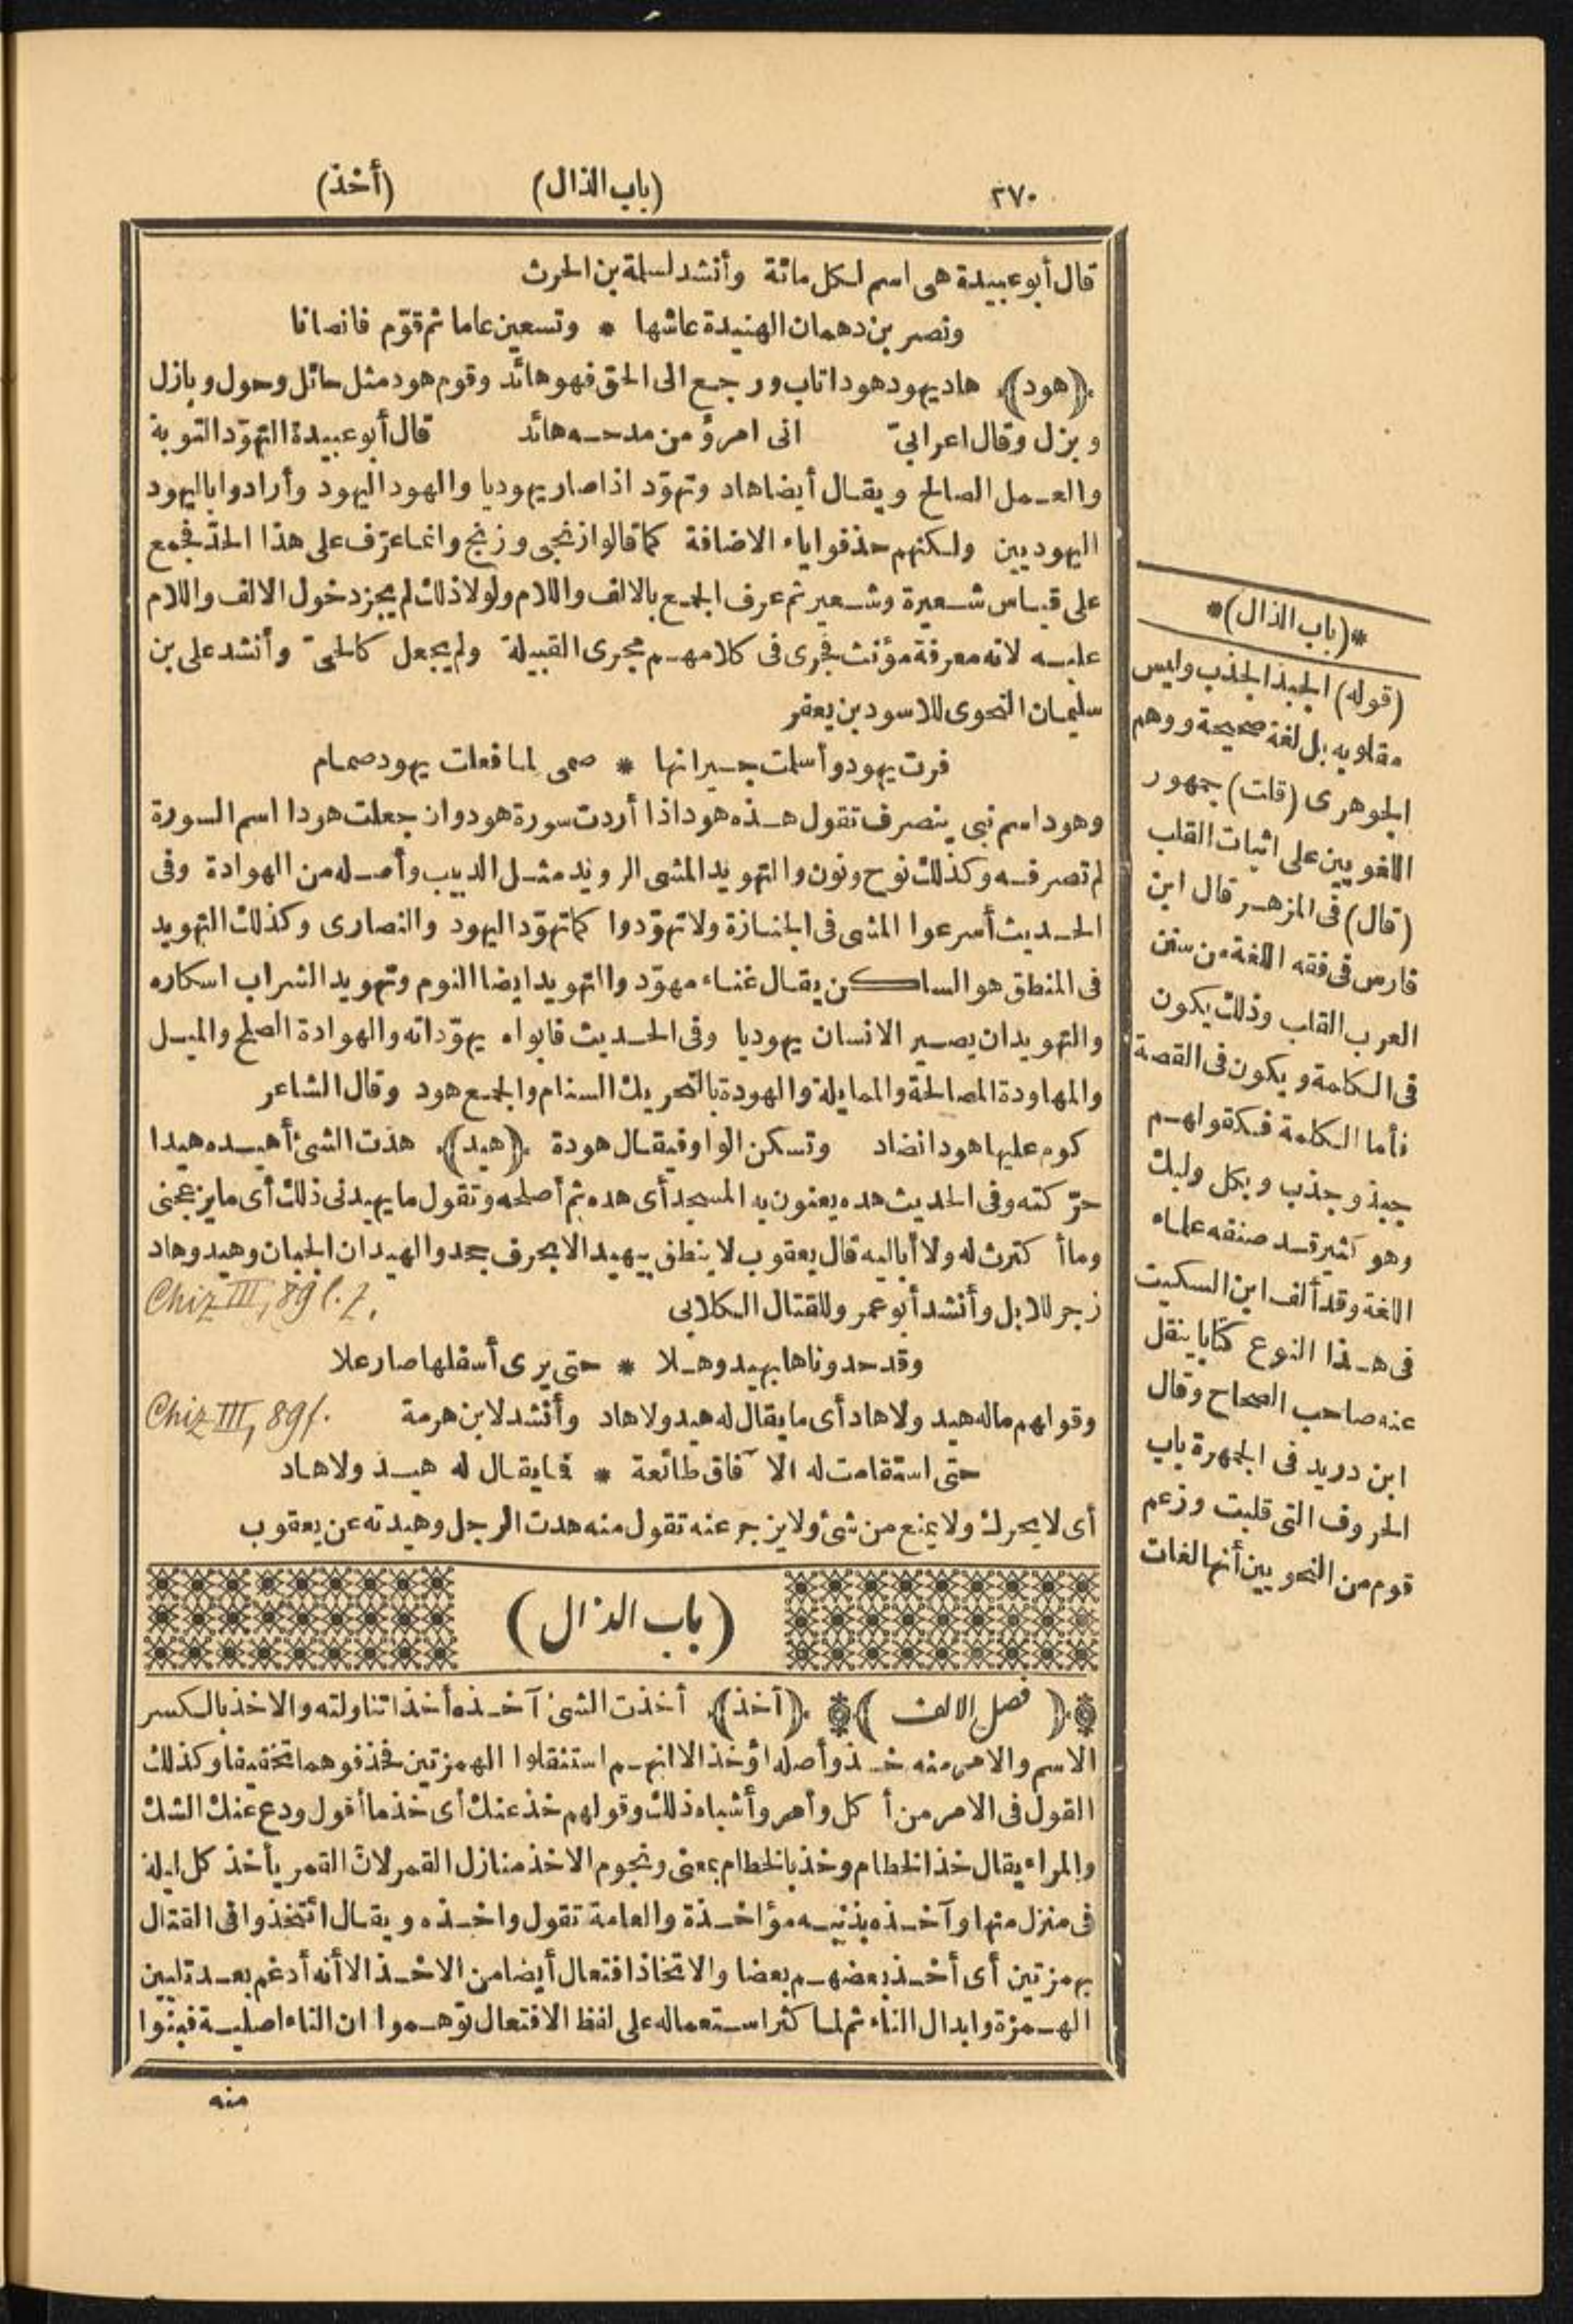 ٢٧٠ (باب الذال) (أخذ)
قال أبو عبيدة هى اسم لكل مائة وأنشد لسلمة بن الحرث
ونصر بن دهمان الهنيدة عاشها * وتسعين عاما ثم قوّم فانصاتا
﴿هود﴾ هاد يهود هودا تاب ورجع الى الحق فهو هائد وقوم هود مثل حائل وحول وبازل
وبزل وقال اعرابيّ انى امرؤ من مدحه هائد قال أبو عبيدة التهوّد التوبة
والعمل الصالح ويقال أيضا هاد وتهوّد اذا صار يهوديا والهود اليهود وأرادوا باليهود
اليهوديين ولكنهم حذفوا ياء الاضافة كما قالوا زنجى وزنج وانما عرّف على هذا الحدّ فجمع
على قياس شعيرة وشعير ثم عرف الجمع بالالف واللام ولولا ذلك لم يجز دخول الالف واللام
عليه لانه معرفة مؤنث فجرى فى كلامهم مجرى القبيلة ولم يجعل كالحىّ وأنشد على بن
سليمان النحوى للاسود بن يعفر
فرت يهود وأسلمت جيرانها * صمى لما فعلت يهود صمام
وهود اسم نبى ينصرف تقول هذه هود اذا أردت سورة هود وان جعلت هودا اسم السورة
لم تصرفه وكذلك نوح ونون والتهويد المشى الرويد مثل الدبيب وأصله من الهوادة وفى
الحديث أسرعوا المشى فى الجنازة ولا تهوّدوا كما تهوّد اليهود والنصارى وكذلك التهويد
فى المنطق هو الساكن يقال غناء مهوّد والتهويد ايضا النوم وتهويد الشراب اسكاره
والتهويد ان يصير الانسان يهوديا وفى الحديث فابواه يهوّدانه والهوادة الصلح والميل
والمهاودة المصالحة والممايلة والهودة بالتحريك السنام والجمع هود وقال الشاعر
كوم عليها هود انضاد وتسكن الواو فيقال هودة ﴿هيد﴾ هدت الشئ أهيده هيدا
حرّكته وفى الحديث هده يعنون به المسجد أى هده ثم أصلحه وتقول ما يهيدنى ذلك أى ما يزعجنى
وما أكترث له ولا أباليه قال يعقوب لا ينطق بيهيد الا بحرف جحد والهيدان الجبان وهيد وهاد
زجر للابل وأنشد أبو عمرو للقتال الكلابى Chiz III, 89 l. Z.
وقد حدوناها بهيد وهلا * حتى يرى أسفلها صار علا
وقولهم ماله هيد ولا هاد أى ما يقال له هيد ولا هاد وأنشد لابن هرمة Chiz III, 89 f.
حتى استقامت له الآفاق طائعة * فما يقال له هيد ولا هاد
أى لا يحرك ولا يمنع من شئ ولا يزجر عنه تقول منه هدت الرجل وهيدته عن يعقوب
(باب الذال)
(فصل الالف) ﴿أخذ﴾ أخذت الشئ آخذه أخذا تناولته والاخذ بالكسر
الاسم والامر منه خذ وأصله اؤخذ الا انهم استثقلوا الهمزتين فحذفوهما تخفيفا وكذلك
القول فى الامر من أكل وأمر وأشباه ذلك وقولهم خذ عنك أى خذ ما أقول ودع عنك الشك
والمراء يقال خذ الخطام وخذ بالخطام بمعنى ونجوم الاخذ منازل القمر لانّ القمر يأخذ كل ليلة
فى منزل منها وآخذه بذنبه مؤاخذة والعامة تقول واخذه ويقال ائتخذوا فى القتال
بهمزتين أى أخذ بعضهم بعضا والاتخاذ افتعال أيضا من الاخذ الا أنه أدغم بعد تليين
الهمزة وابدال التاء ثم لما كثر استعماله على لفظ الافتعال توّهموا ان التاء اصلية فبنوا
منه
*(باب الذال)*
(قوله) الجبذ الجذب وليس
مقلوبه بل لغة صحيحة ووهم
الجوهرى (قلت) جمهور
اللغويين على اثبات القلب
(قال) فى المزهر قال ابن
فارس فى فقه اللغة من سنن
العرب القلب وذلك يكون
فى الكلمة ويكون فى القصة
فأما الكلمة فكقولهم
جبذ وجذب وبكل ولبك
وهو كثير قد صنفه علماء
اللغة وقد ألف ابن السكيت
فى هذا النوع كتابا ينقل
عنه صاحب الصحاح وقال
ابن دريد فى الجمهرة باب
الحروف التى قلبت وزعم
قوم من النحويين أنها لغات